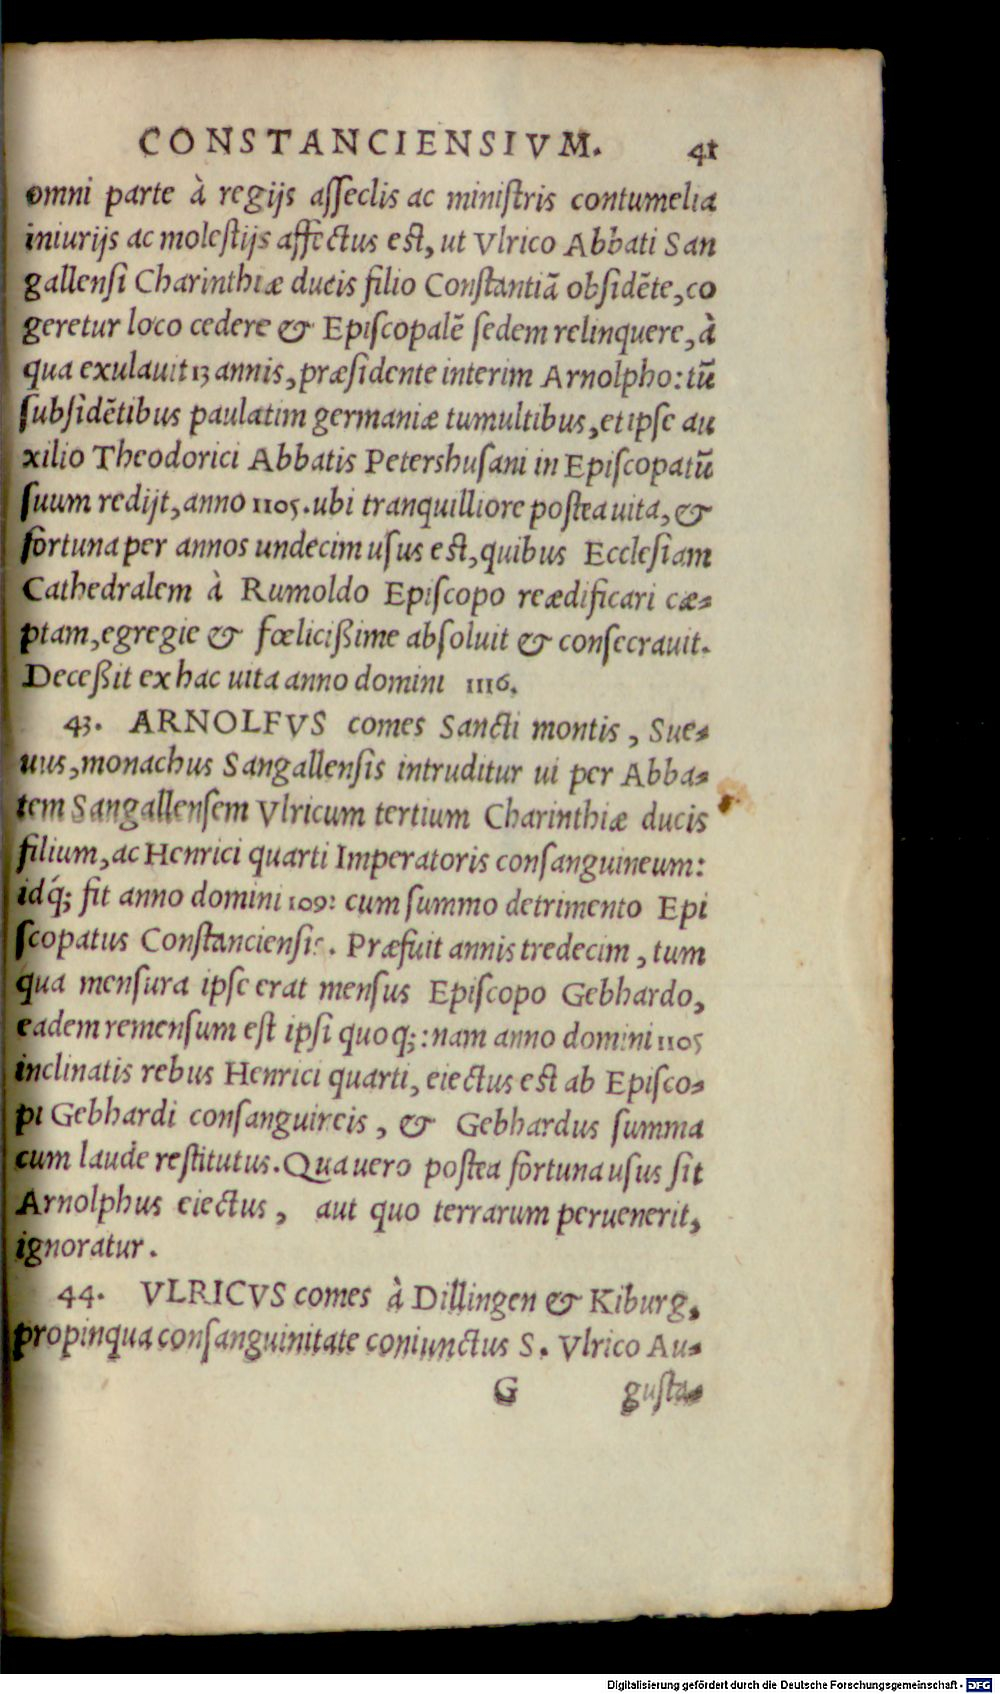 CONSTANCIENSIVM. 41
omni parte à regijs aſſeclis ac miniſtris contumelia
iniurijs ac moleſtijs affectus eſt, ut Vlrico Abbati San
gallenſi Charinthiæ ducis filio Conſtantiā obſidēte, co
geretur loco cedere & Epiſcopalē ſedem relinquere, à
qua exulauit 13 annis, præſidente interim Arnolpho: tū
ſubſidētibus paulatim germaniæ tumultibus, et ipſe au
xilio Theodorici Abbatis Petershuſani in Epiſcopatū
ſuum redijt, anno 1105. ubi tranquilliore poſtea uita, &
fortuna per annos undecim uſus eſt, quibus Eccleſiam
Cathedralem à Rumoldo Epiſcopo reædificari cæ-
ptam, egregie & fœlicißime abſoluit & conſecrauit.
Deceßit ex hac uita anno domini 1116.
43. ARNOLFVS comes Sancti montis, Sue-
uus, monachus Sangallenſis intruditur ui per Abba-
tem Sangallenſem Vlricum tertium Charinthiæ ducis
filium, ac Henrici quarti Imperatoris conſanguineum:
idq́; fit anno domini 1092 cum ſummo detrimento Epi
ſcopatus Conſtancienſis. Præfuit annis tredecim, tum
qua menſura ipſe erat menſus Epiſcopo Gebhardo,
eadem remenſum eſt ipſi quoq;: nam anno domini 1105
inclinatis rebus Henrici quarti, eiectus eſt ab Epiſco-
pi Gebhardi conſanguineis, & Gebhardus ſumma
cum laude reſtitutus. Qua uero poſtea fortuna uſus ſit
Arnolphus eiectus, aut quo terrarum peruenerit,
ignoratur.
44. VLRICVS comes à Dillingen & Kiburg,
propinqua conſanguinitate coniunctus S. Vlrico Au-
G guſta-
Digitalisierung gefördert durch die Deutsche Forschungsgemeinschaft - DFG